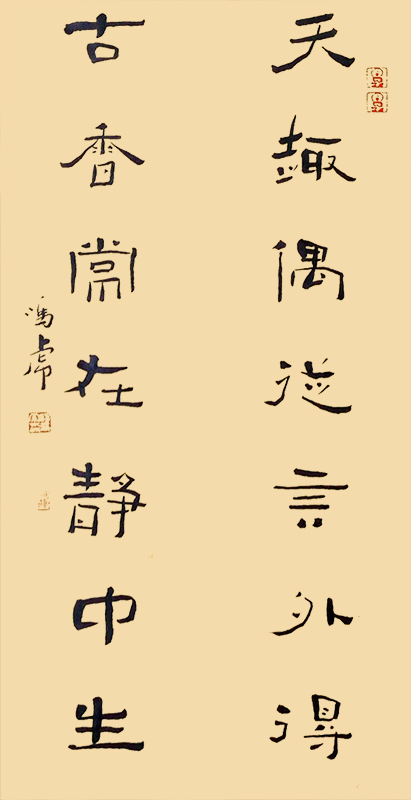 天趣偶從言外得
古香常在靜中生
馮虎